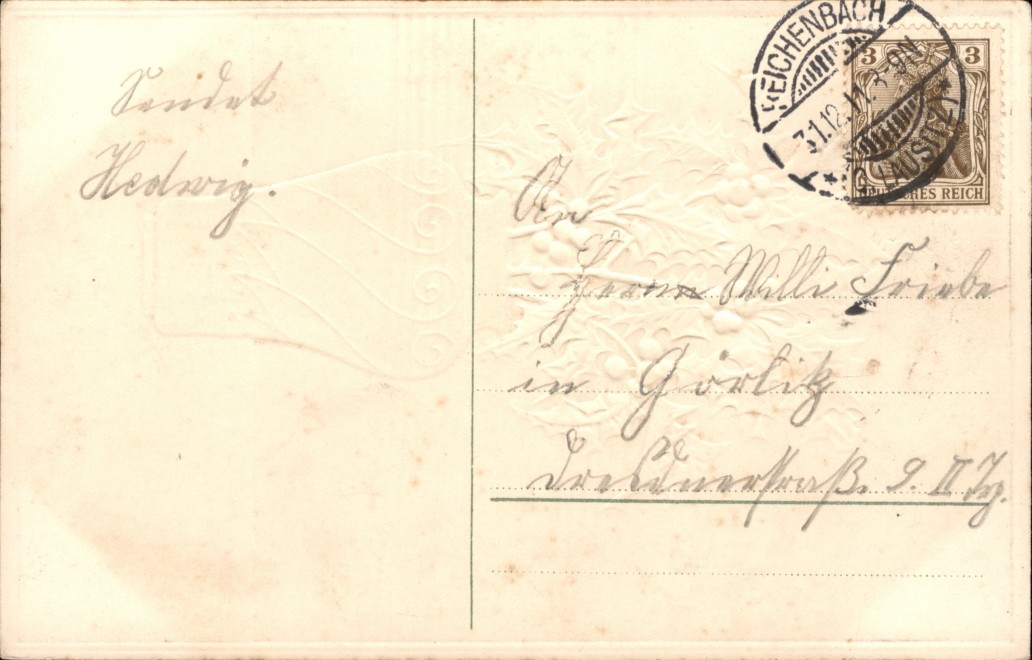 Sendet
Hedwig.
REICHENBACH
31.12.11.
(O. LAUSITZ)
3 3
DEUTSCHES REICH
An
Herrn Willi Friebe
in Görlitz
Dresdnerstraße 9. II Tr.